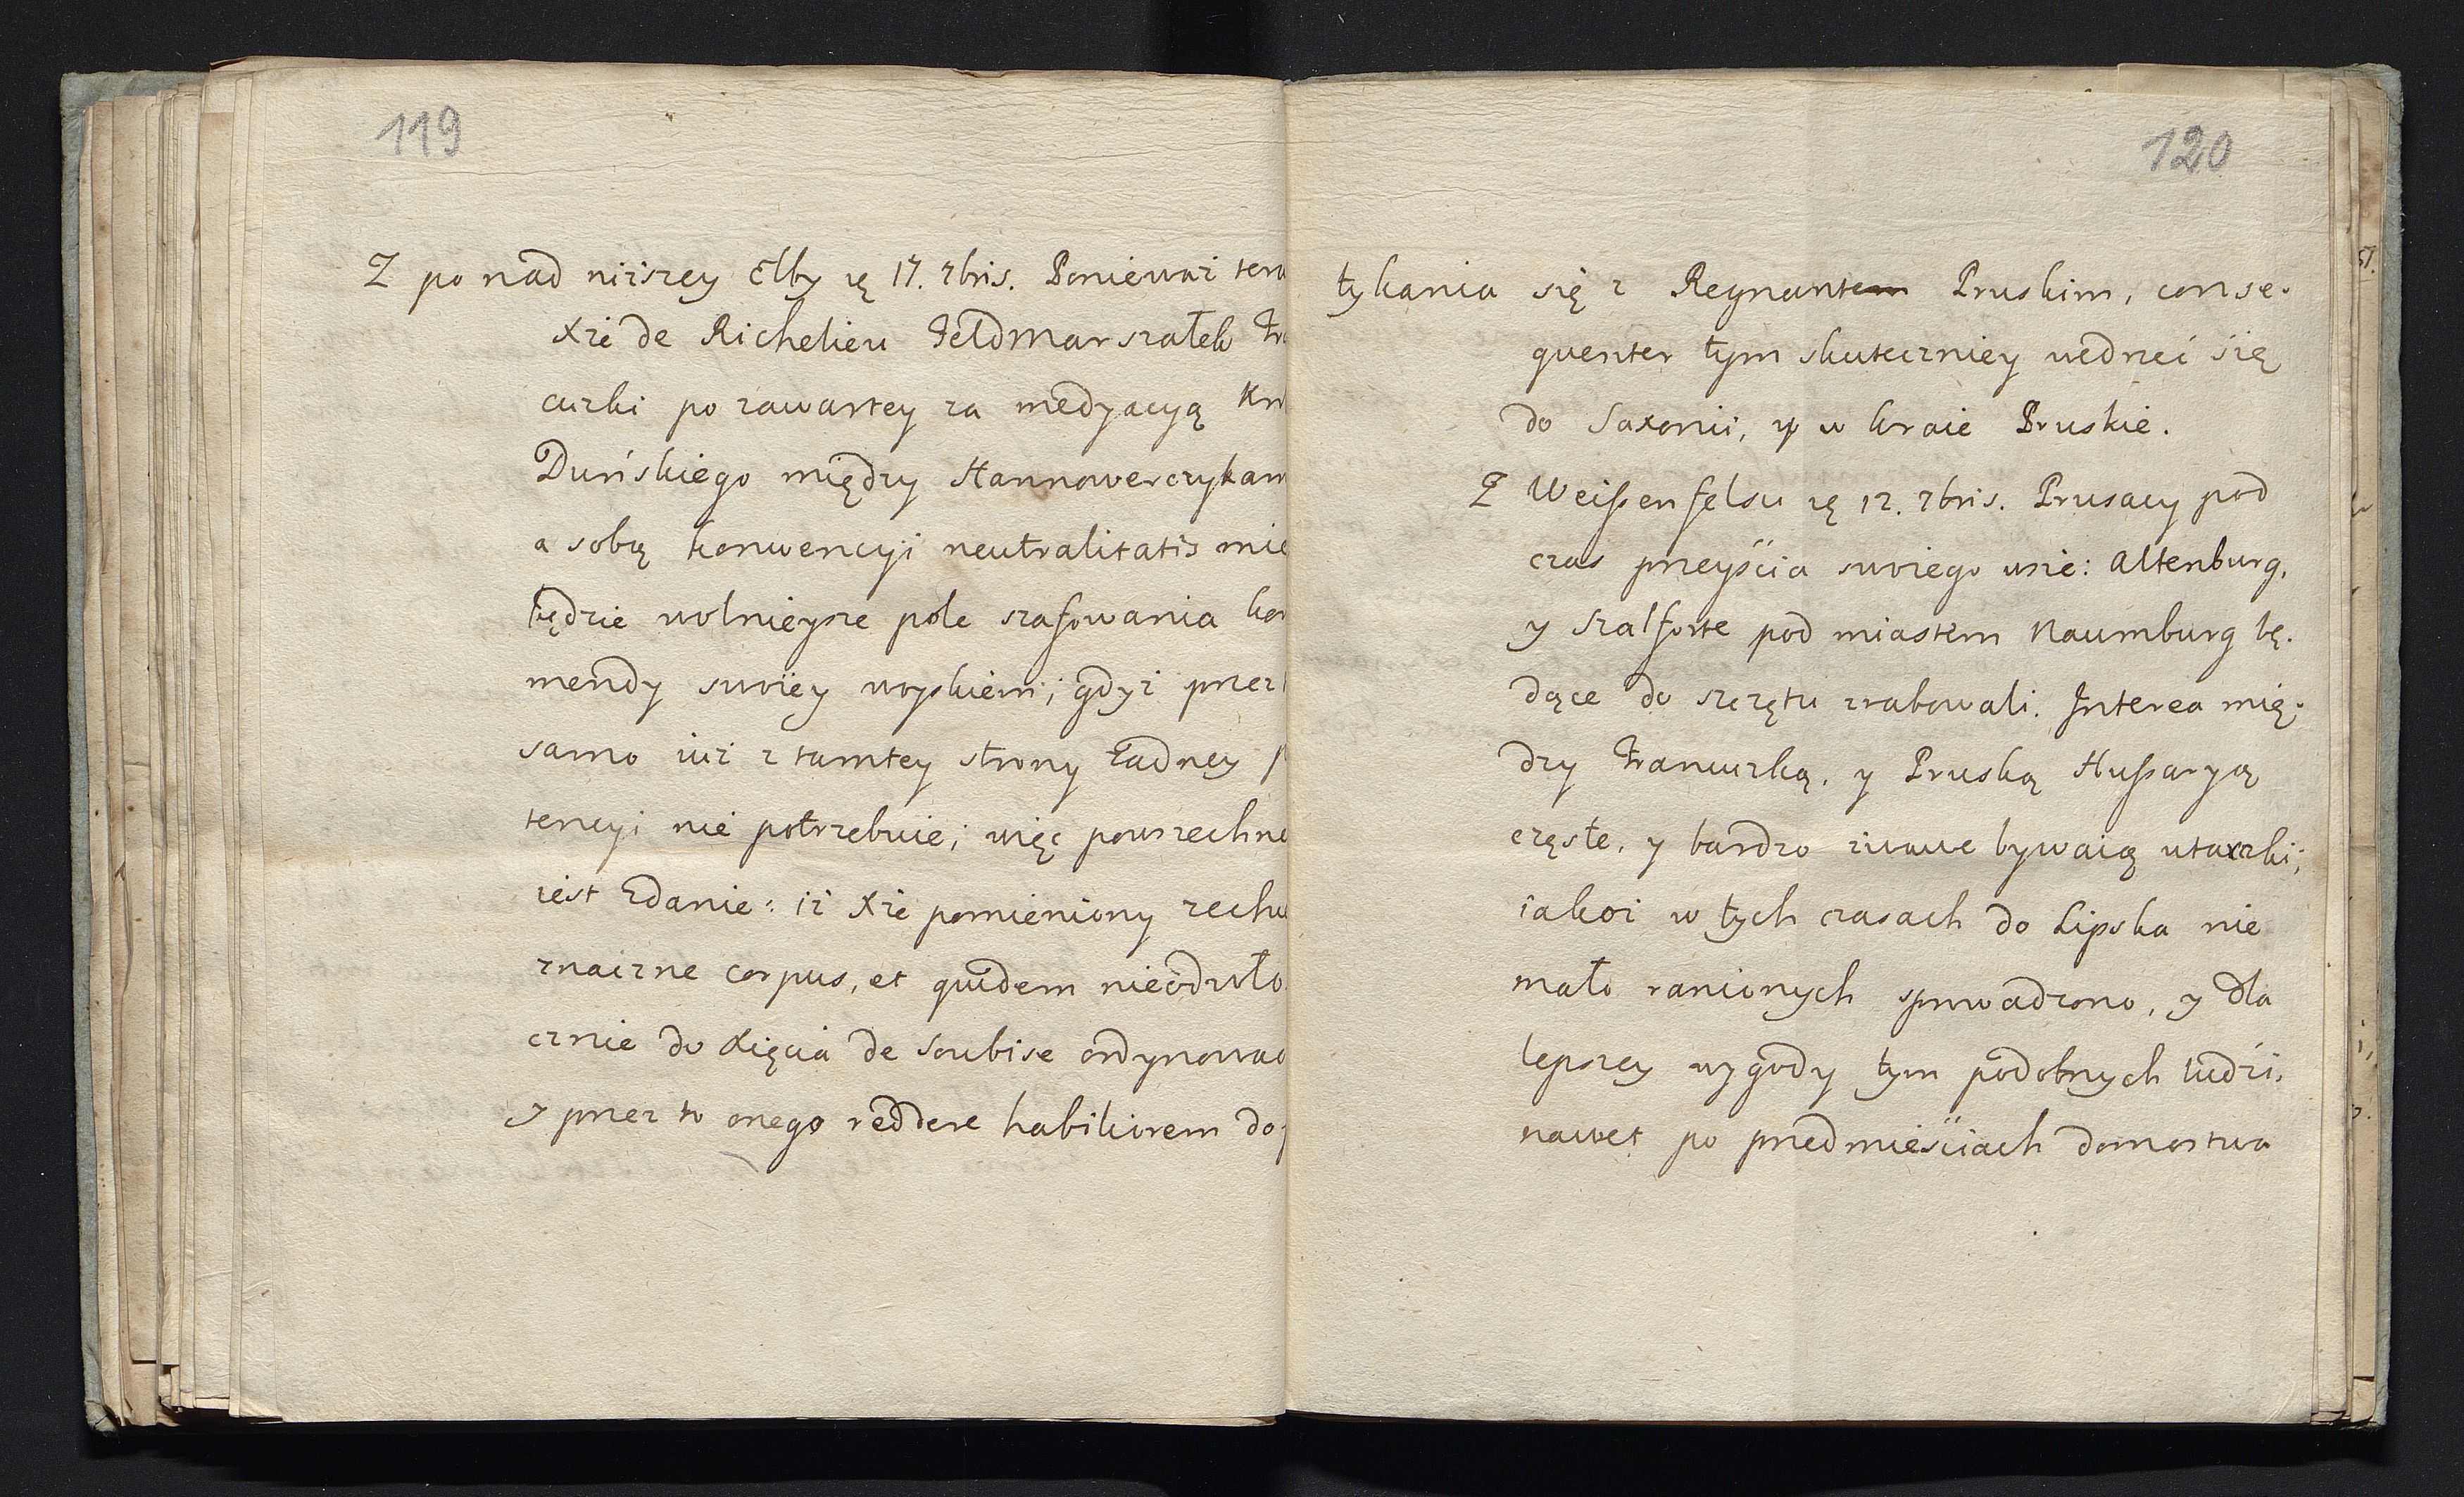 119
Z po nad niższey Elby ię 17. 7bris. Ponieważ tera
Xże de Richelieu Feldmarszałek Fra
cuzki po zawartey za medyacyą Kró
Duńskiego między Hannowerczykam
a sobą konwencyi neutralitatis mie
będzie wolnieysze pole szafowania kom
mendy swoiey woyskiem; gdyż przez
samo iuż z tamtey strony żadney p
tencyi nie potrzebuie; więc powszechne
iest zdanie: iż Xże pomieniony zechc
znaczne corpus, et quidem nieodwło
cznie do Xięcia de Soubise ordynowac
y przez to onego reddere habiliorem do p
120
tykania się z Regnantem Pruskim, conse.
quenter tym skuteczniey wedrzeć się
do Saxonii, y w kraie Pruskie.
Z Weißenfelsu ię 12. 7bris. Prusacy pod
czas przeyścia swoiego wsie: Altenburg,
y Szalforte pod miastem Naumburg bę.
dące do szczętu zrabowali. Interea mię.
dzy Francuzką, y Pruską Hußaryą
częste, y bardzo żwawe bywaią utarczki;
iakoż w tych czasach do Lipska nie
mało ranionych sprowadzono, y dla
lepszey wygody tym podobnych ludzi,
nawet po przedmieściach domostwa